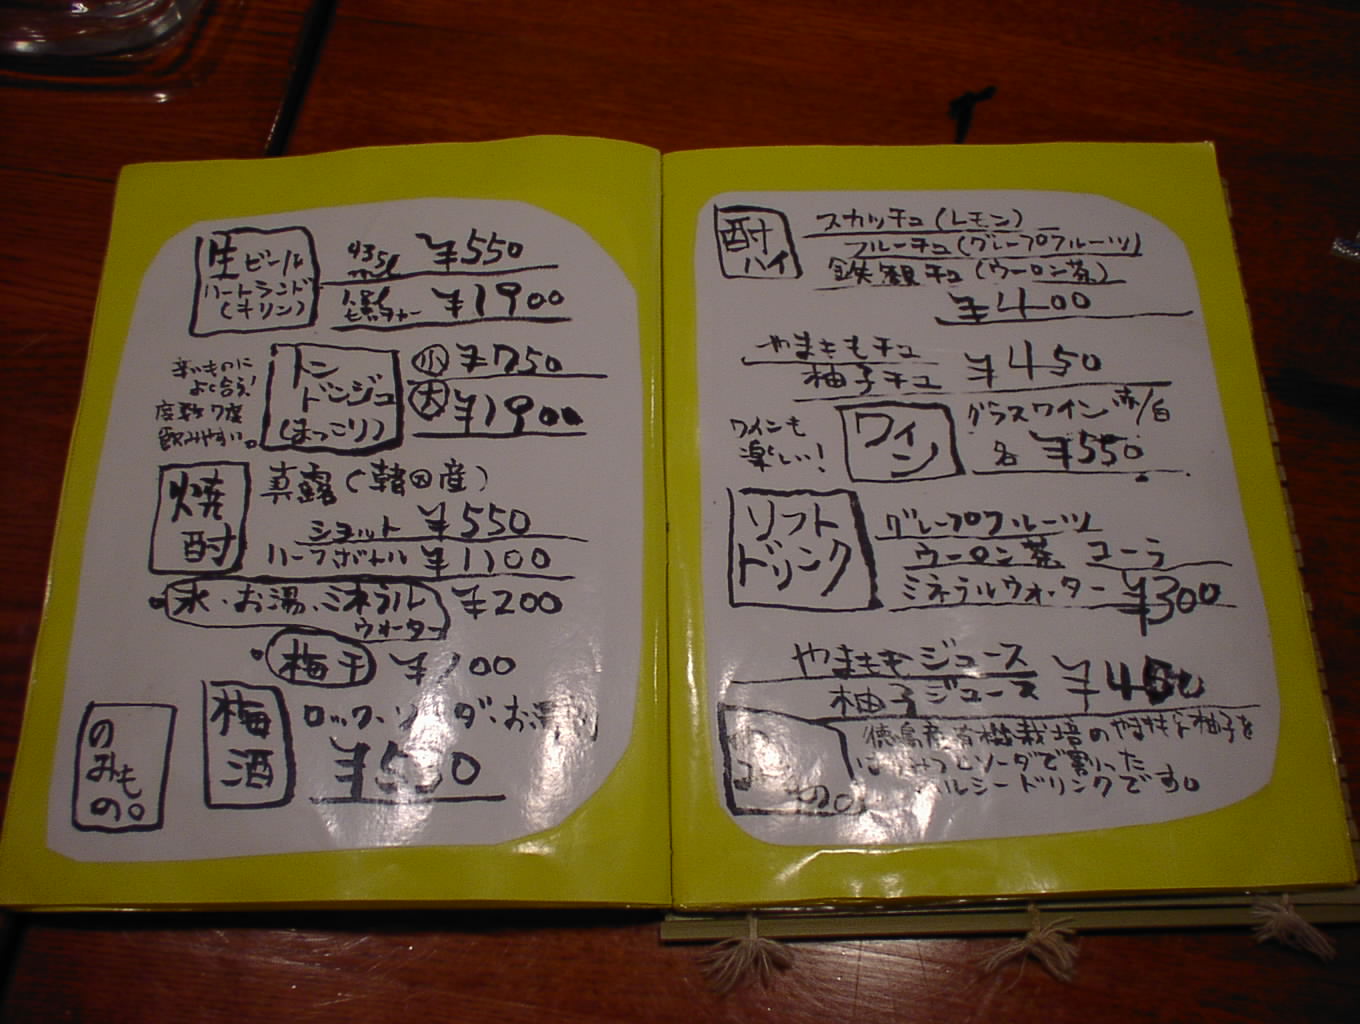 生ビール
ハートランド
(キリン)
435ml ¥550
ピッチャー ¥1900
辛いものに
よく合う!
度数7度
飲みやすい。
トン
ドンジュ
(まっこり)
小 ¥750
大 ¥1900
焼
酎
真露(韓国産)
ショット ¥550
ハーフボトル ¥1100
氷・お湯・ミネラル
ウォーター ¥200
梅干 ¥100
梅
酒
ロック・ソーダ・お湯
¥550
の
みもの。
酎
ハイ
スカッチュ(レモン)
フルーチュ(グレープフルーツ)
鉄観チュ(ウーロン茶)
¥400
やまももチュ
柚子チュ ¥450
ワインも
楽しい!
ワイン
グラスワイン 赤/白
各 ¥550
ソフト
ドリンク
グレープフルーツ
ウーロン茶 コーラ
ミネラルウォーター ¥300
やまももジュース
柚子ジュース ¥450
徳島産有機栽培のやまももと柚子を
ソーダで割った
ヘルシードリンクです。